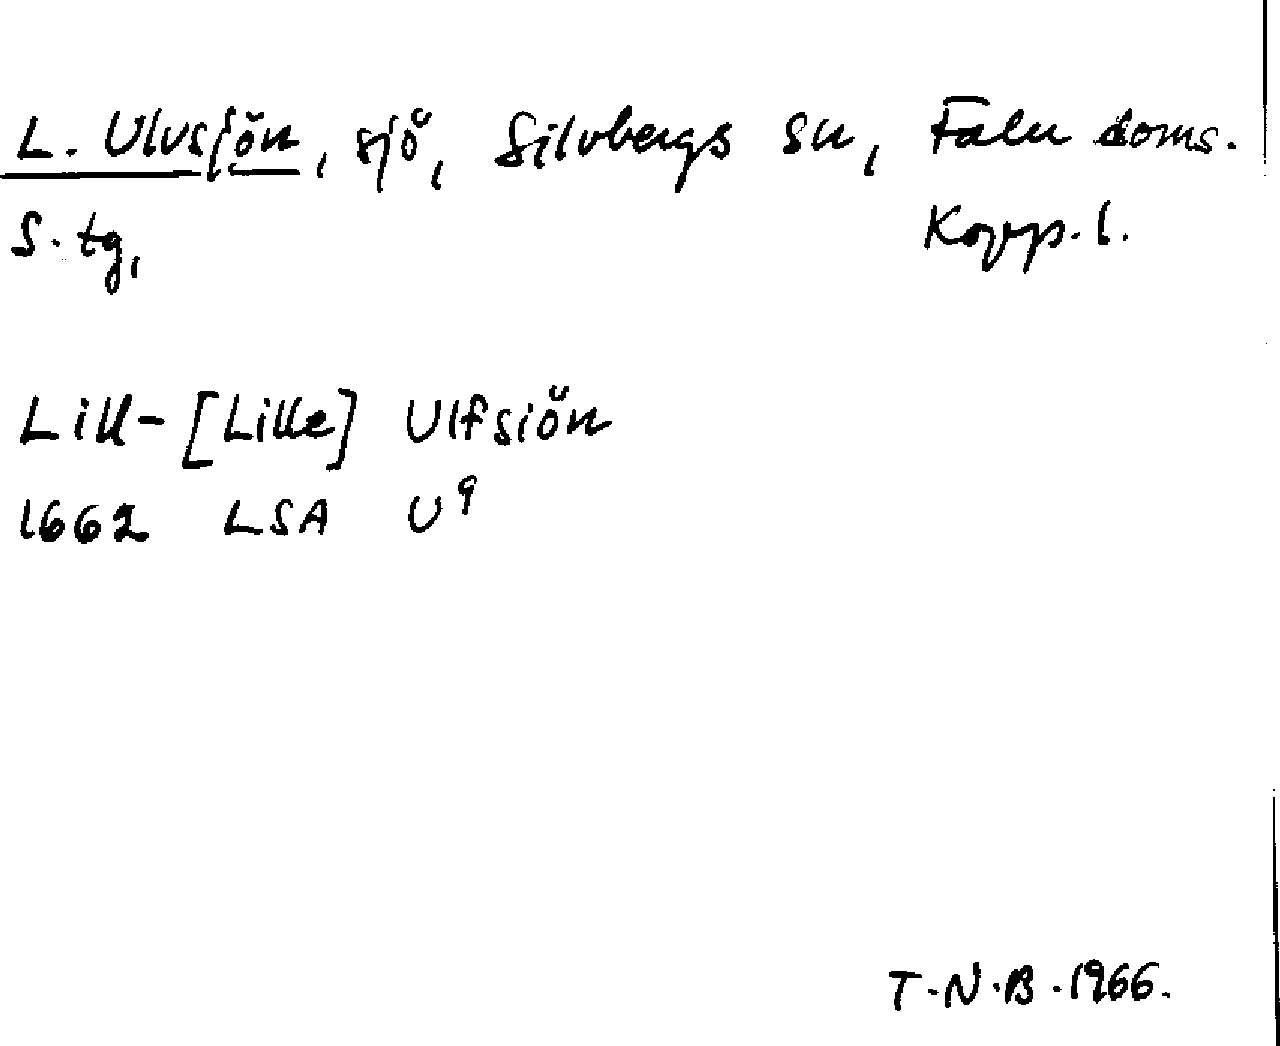 L. Ulvsjön, sjö, Silvbergs sn, Falu doms.
S. tg, Kopp. l.
Lill- [Lille] Ulfsiön
1662 LSA U⁹
T.N.B. 1966.